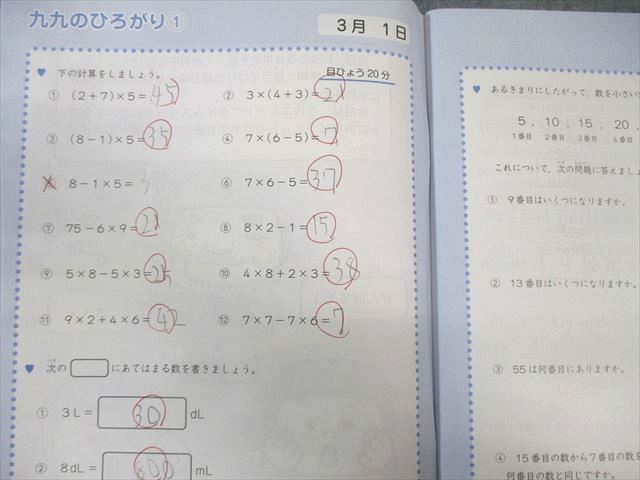 九九のひろがり①
3月 1日
♥ 下の計算をしましょう。
目ひょう20分
① (2+7)×5=45
② 3×(4+3)=21
③ (8-1)×5=35
④ 7×(6-5)=7
8-1×5=3
⑥ 7×6-5=37
⑦ 75-6×9=21
⑧ 8×2-1=15
⑨ 5×8-5×3=25
⑩ 4×8+2×3=38
⑪ 9×2+4×6=42
⑫ 7×7-7×6=7
♥ 次のにあてはまる数を書きましょう。
① 3L=30dL
② 8dL=800mL
♥ あるきまりにしたがって、数を小さい
5, 10, 15, 20
1番目 2番目 3番目 4番目
これについて、次の問題に答えましょ
① 9番目はいくつになりますか。
② 13番目はいくつになりますか。
③ 55は何番目にありますか。
④ 15番目の数から7番目の数を
何番目の数と同じですか。